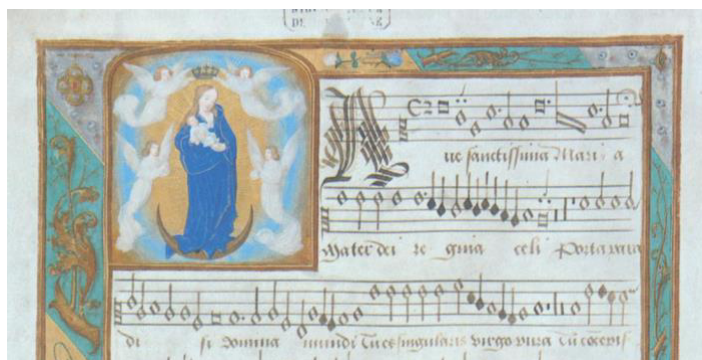 Aue sanctissima Mari a
Mater dei re gina celi Porta para
di si Domina mundi Tu es singularis virgo pura Tu cōcepis